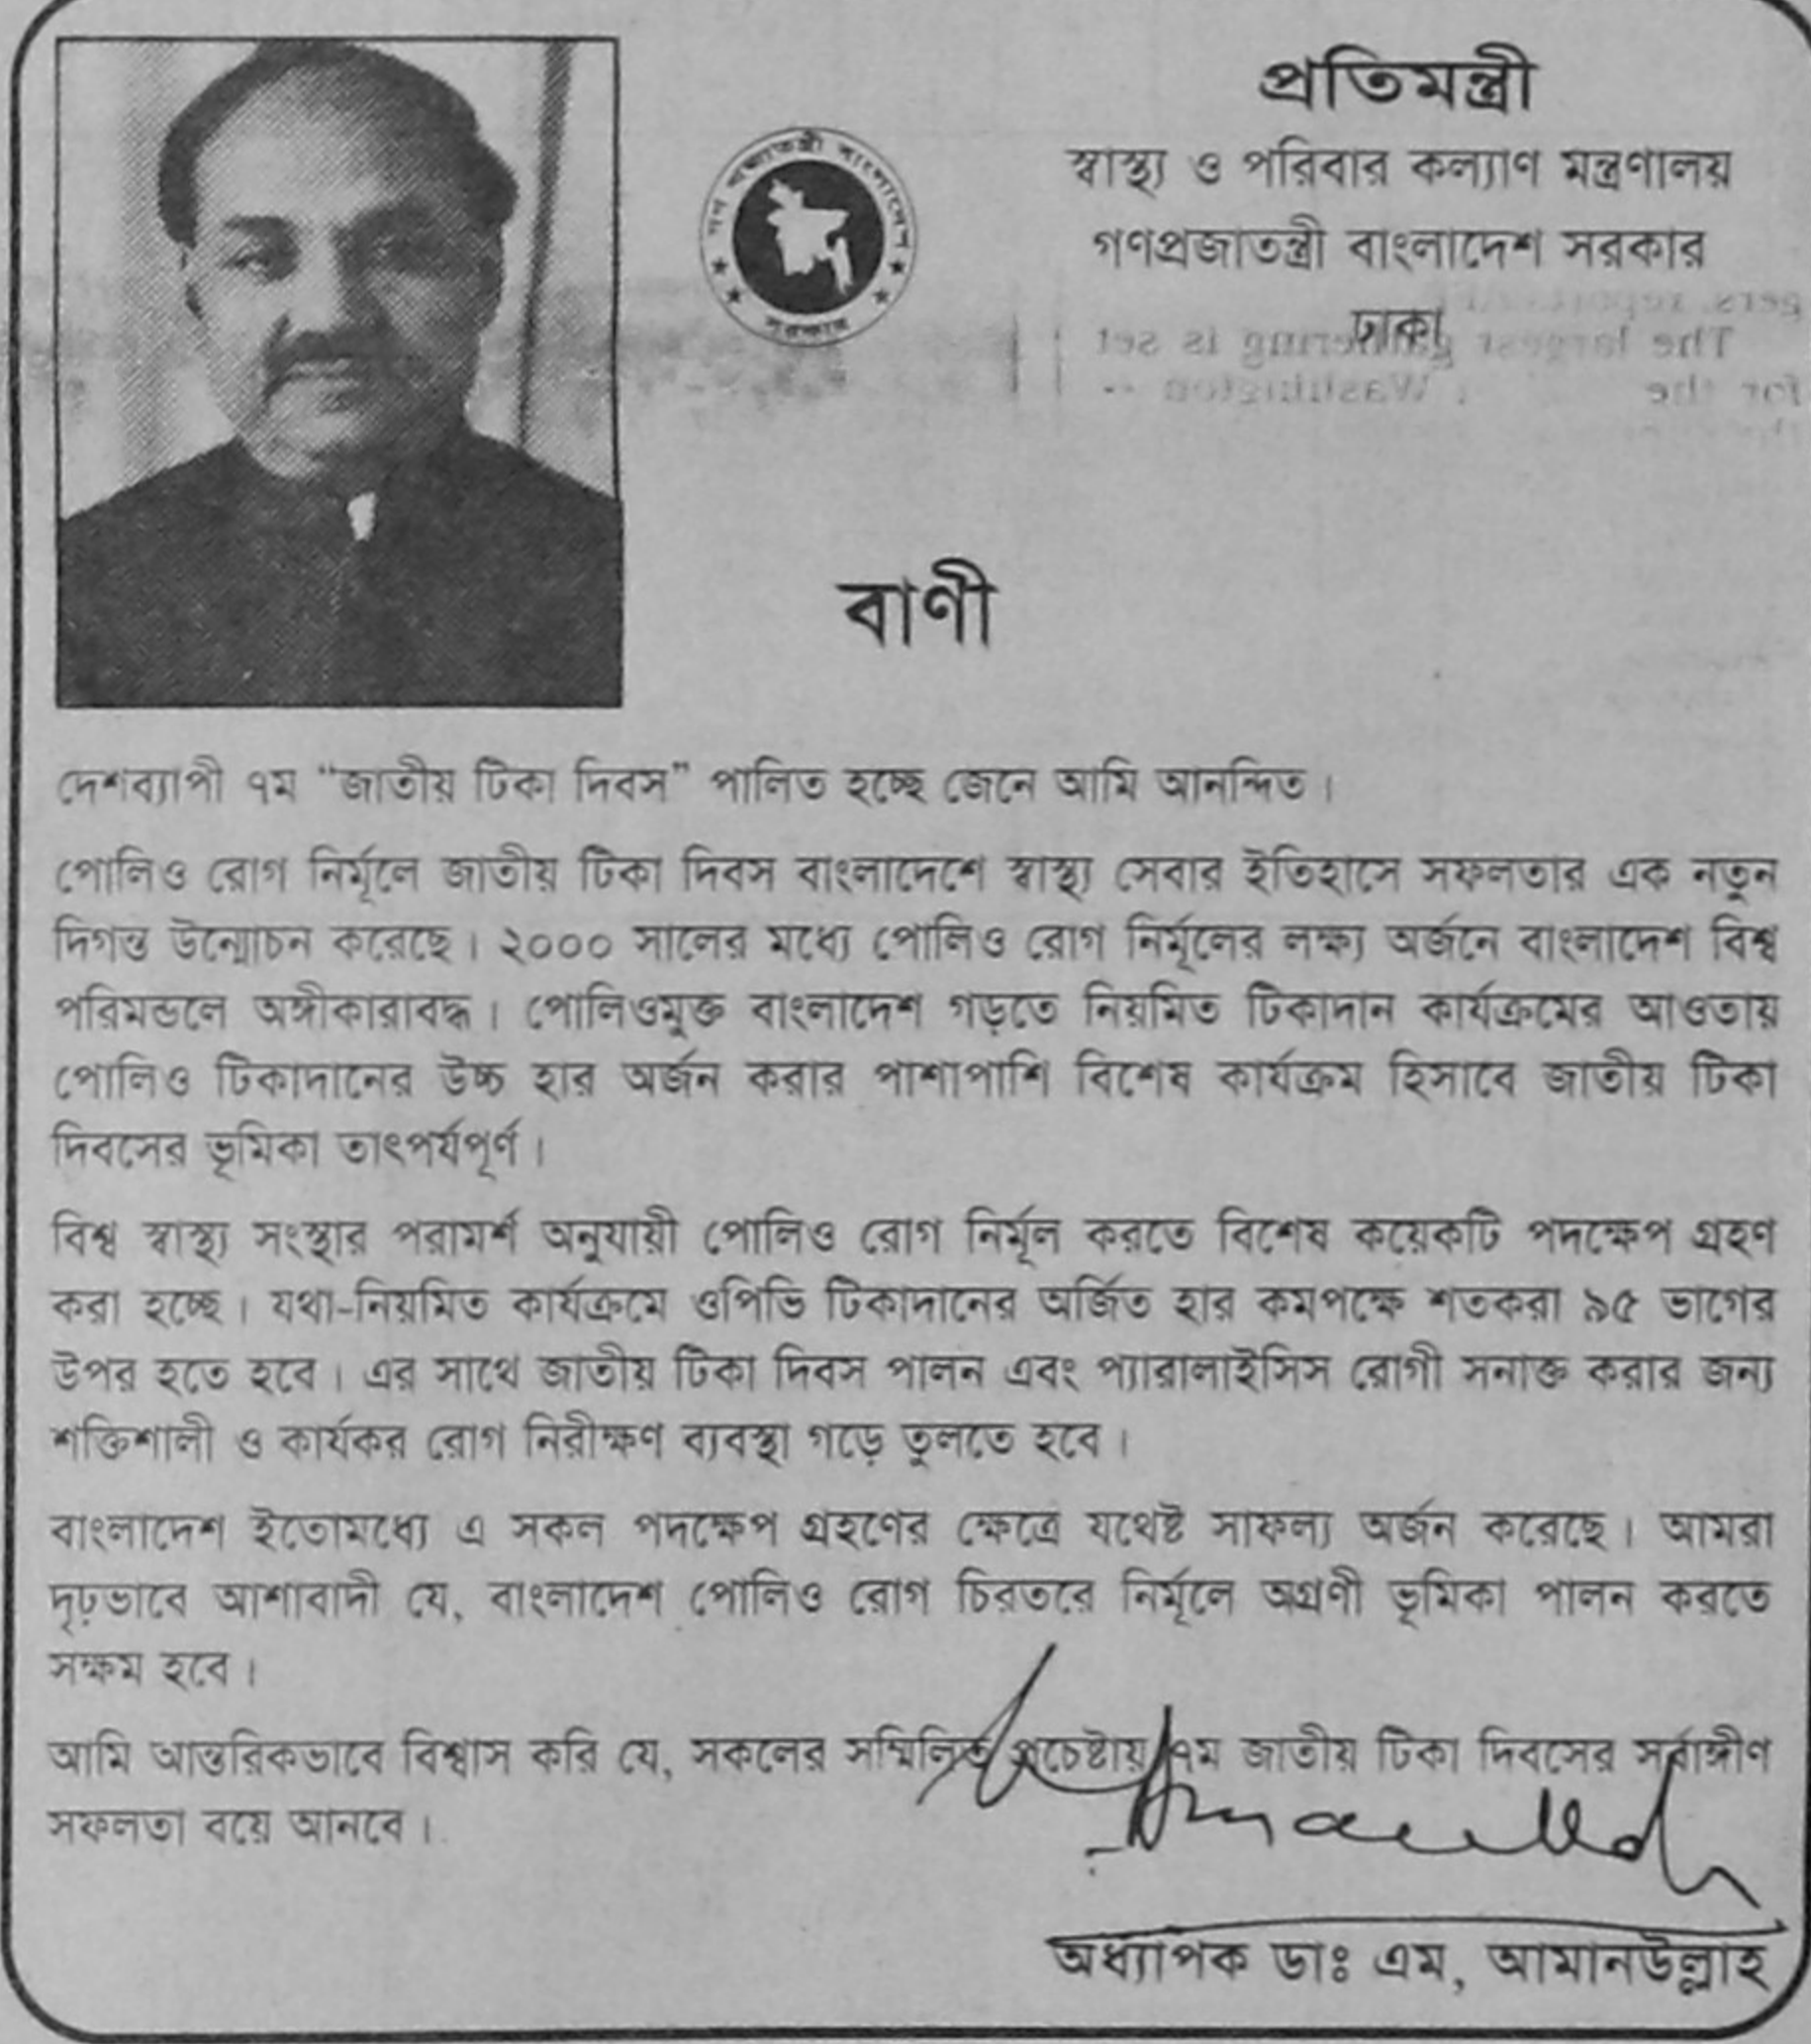 প্রতিমন্ত্রী
স্বাস্থ্য ও পরিবার কল্যাণ মন্ত্রণালয়
গণপ্রজাতন্ত্রী বাংলাদেশ সরকার
ঢাকা
গণ প্রজাতন্ত্রী বাংলাদেশ
সরকার
gers. report
The largest gathering is set
for the Washington --
বাণী
দেশব্যাপী ৭ম “জাতীয় টিকা দিবস” পালিত হচ্ছে জেনে আমি আনন্দিত।
পোলিও রোগ নির্মূলে জাতীয় টিকা দিবস বাংলাদেশে স্বাস্থ্য সেবার ইতিহাসে সফলতার এক নতুন
দিগন্ত উন্মোচন করেছে। ২০০০ সালের মধ্যে পোলিও রোগ নির্মূলের লক্ষ্য অর্জনে বাংলাদেশ বিশ্ব
পরিমন্ডলে অঙ্গীকারাবদ্ধ। পোলিওমুক্ত বাংলাদেশ গড়তে নিয়মিত টিকাদান কার্যক্রমের আওতায়
পোলিও টিকাদানের উচ্চ হার অর্জন করার পাশাপাশি বিশেষ কার্যক্রম হিসাবে জাতীয় টিকা
দিবসের ভূমিকা তাৎপর্যপূর্ণ।
বিশ্ব স্বাস্থ্য সংস্থার পরামর্শ অনুযায়ী পোলিও রোগ নির্মূল করতে বিশেষ কয়েকটি পদক্ষেপ গ্রহণ
করা হচ্ছে। যথা-নিয়মিত কার্যক্রমে ওপিভি টিকাদানের অর্জিত হার কমপক্ষে শতকরা ৯৫ ভাগের
উপর হতে হবে। এর সাথে জাতীয় টিকা দিবস পালন এবং প্যারালাইসিস রোগী সনাক্ত করার জন্য
শক্তিশালী ও কার্যকর রোগ নিরীক্ষণ ব্যবস্থা গড়ে তুলতে হবে।
বাংলাদেশ ইতোমধ্যে এ সকল পদক্ষেপ গ্রহণের ক্ষেত্রে যথেষ্ট সাফল্য অর্জন করেছে। আমরা
দৃঢ়ভাবে আশাবাদী যে, বাংলাদেশ পোলিও রোগ চিরতরে নির্মূলে অগ্রণী ভূমিকা পালন করতে
সক্ষম হবে।
আমি আন্তরিকভাবে বিশ্বাস করি যে, সকলের সম্মিলিত প্রচেষ্টায় ৭ম জাতীয় টিকা দিবসের সর্বাঙ্গীণ
সফলতা বয়ে আনবে।
অধ্যাপক ডাঃ এম, আমানউল্লাহ